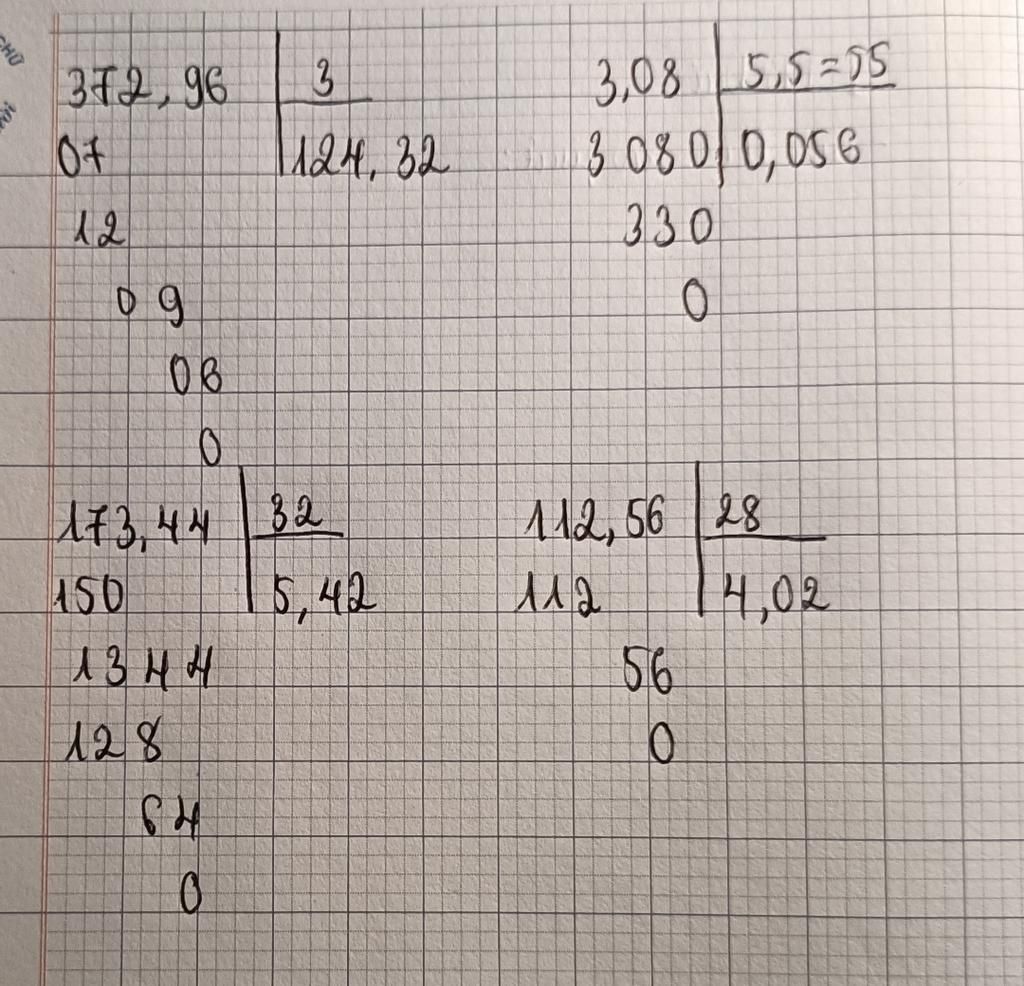 372,96 3
07 124,32
12
09
06
0
3,08 5,5=55
3080 0,056
330
0
173,44 32
150 5,42
1344
128
64
0
112,56 28
112 4,02
56
0